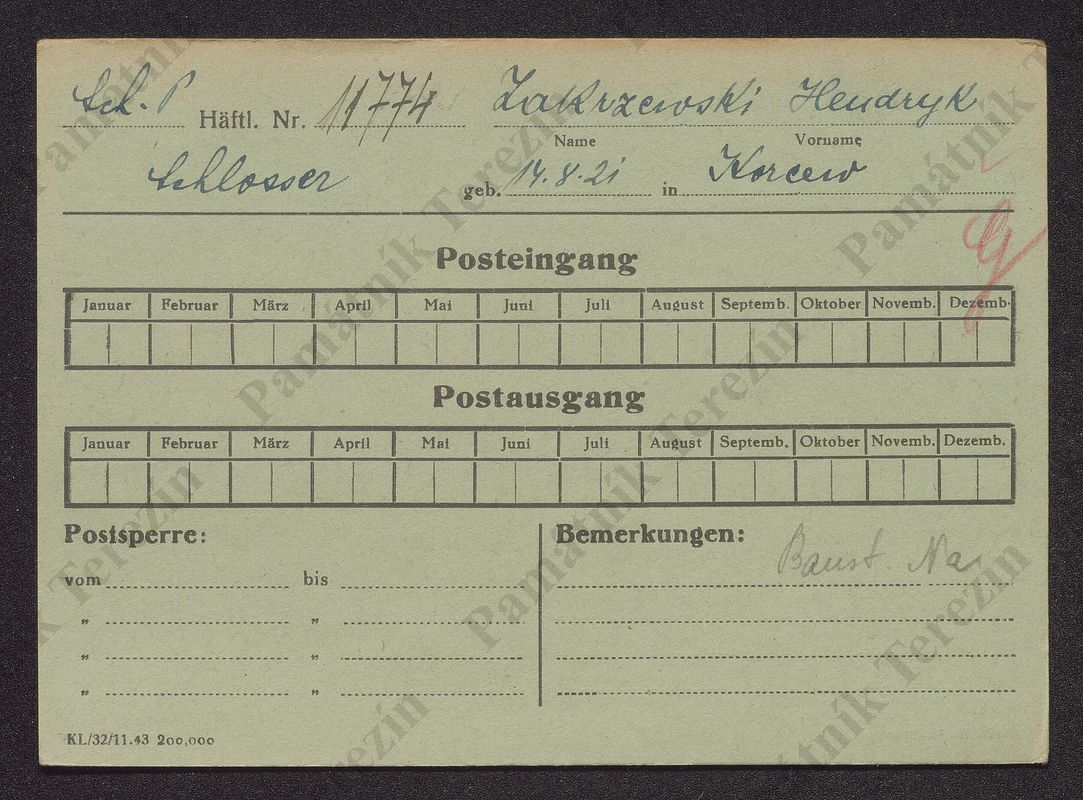 Sch. P Häftl. Nr. 11774 Zakrzewski Hendryk
Name Vorname
Schlosser geb. 14.8.21 in Korcew
Posteingang
Januar Februar März April Mai Juni Juli August Septemb. Oktober Novemb. Dezemb.
Postausgang
Januar Februar März April Mai Juni Juli August Septemb. Oktober Novemb. Dezemb.
Postsperre: Bemerkungen:
Baust. Na
vom bis
" "
" "
" "
KL/32/11.43 200,000
Památník Terezín